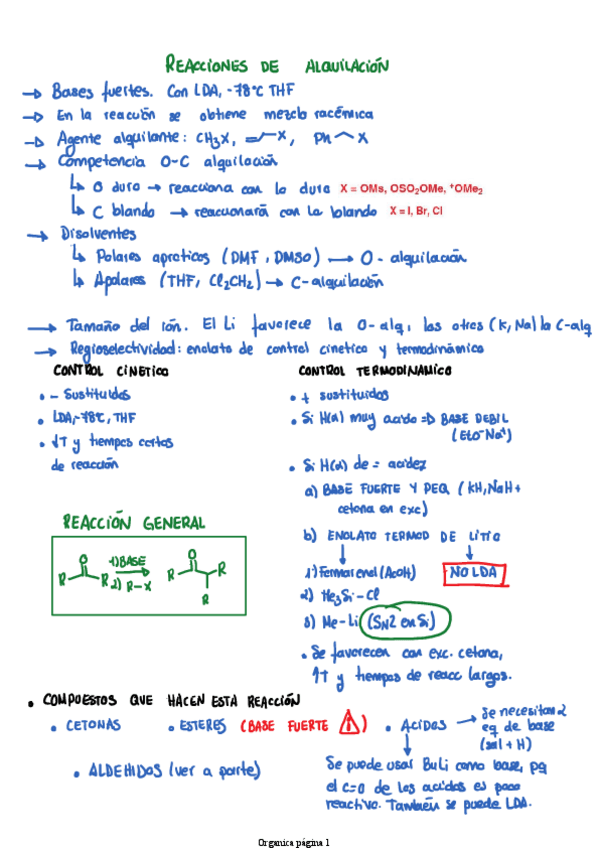 REACCIONES DE ALQUILACIÓN
→ Bases fuertes. Con LDA, -78ºC THF
→ En la reacción se obtiene mezcla racémica
→ Agente alquilante: CH3X, X, Ph X
→ Competencia O-C alquilación
↳ O duro → reacciona con lo duro X = OMs, OSO2OMe, +OMe2
↳ C blando → reaccionará con lo blando X = I, Br, Cl
→ Disolventes
↳ Polares apróticos (DMF, DMSO) → O-alquilación
↳ Apolares (THF, Cl2CH2) → C-alquilación
→ Tamaño del ión. El Li favorece la O-alq, los otros (K, Na) la C-alq
→ Regioselectividad: enolato de control cinético y termodinámico
CONTROL CINÉTICO
• - Sustituidos
• LDA, -78ºC, THF
• ↓T y tiempos cortos
de reacción
CONTROL TERMODINÁMICO
• + sustituidos
• Si H(α) muy ácido => BASE DEBIL
(EtO-Na+)
• Si H(α) de = acidez
a) BASE FUERTE Y PEQ (KH, NaH +
cetona en exc)
b) ENOLATO TERMOD DE LITIO
1) Formar enol (AcOH) NO LDA
2) Me3Si-Cl
3) Me-Li (SN2 en Si)
• Se favorecen con exc. cetona,
↑T y tiempos de reacc largos.
REACCIÓN GENERAL
O 1) BASE O
R R 2) R-X R R
R
• COMPUESTOS QUE HACEN ESTA REACCIÓN
• CETONAS • ESTERES (BASE FUERTE ⚠) • ACIDOS → Se necesitan 2
eq de base
(sal + H)
• ALDEHIDOS (ver a parte)
Se puede usar BuLi como base, pq
el C=O de los acidos es poco
reactivo. También se puede LDA.
Organica página 1